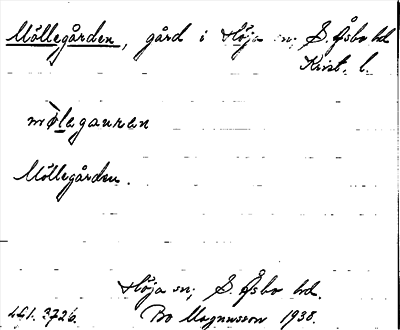 Möllegården, gård i Höja sn, S. Åsbo hd
Krist. l.
mö̀legauren
Möllegården.
Höja sn, S. Åsbo hd.
461. 3726. Bo Magnusson 1938.